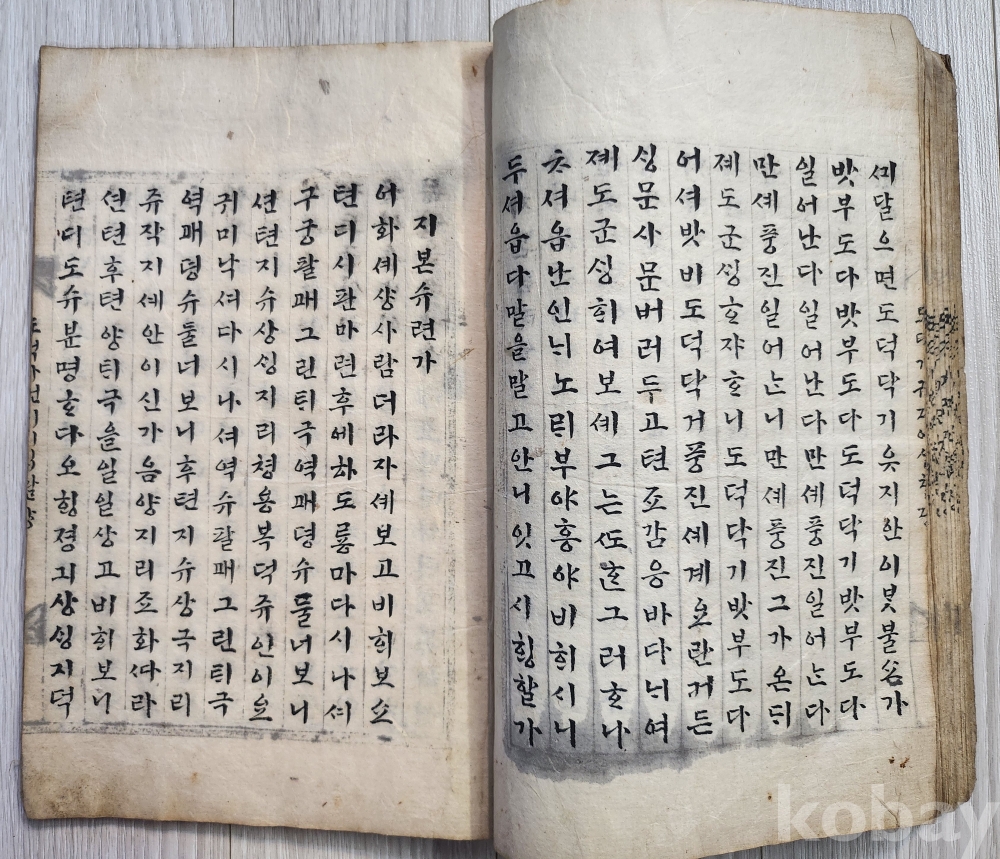 셰달으면도덕닥기읏지안이봇불가
밧부도다밧부도다도덕닥기밧부도다
일어난다일어난다만셰풍진일어ᄂᆞᆫ다
만셰풍진일어ᄂᆞ니만셰풍진그가온ᄃᆡ
졔도군싱ᄒᆞ쟈ᄒᆞ니도덕닥기밧부도다
어셔밧비도덕닥거풍진셰계요란커든
싱문사문버러두고텬죠감응바다ᄂᆡ여
졔도군싱ᄒᆡ여보셰그는ᄯᅩᄒᆞᆫ그러ᄒᆞ나
ᄎᆞ셔읍난인ᄂᆡ노ᄅᆡ부야흥야비ᄒᆡ시니
두셔읍다말을말고안니잇고시ᄒᆡᆼ할가
지본슈련가
어화셰샹사람더라자셰보고비ᄒᆡ보쇼
텬디시판마련후에하도룡마다시나셔
구궁팔패그린틔극역패뎡슈둘너보니
션텬지슈상싱지리쳥용복덕쥬안이요
귀미낙셔다시나셔역슈팔패그린틔극
역패뎡슈둘너보니후텬지슈상극지리
쥬작지셰안이신가음양지리죠화ᄯᅡ라
션텬후텬양틔극을일일상고비ᄒᆡ보니
텬디도슈분명ᄒᆞ다오ᄒᆡᆼ졍긔상싱지덕
kobay